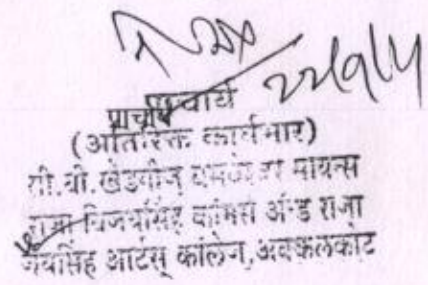 प्राचार्य
(अतिरिक्त कार्यभार)
सी.बी.खेडगीज् सायन्स
राजा विजयसिंह कॉमर्स अँन्ड राजा
जयसिंह आर्टस् कॉलेज,अक्कलकोट